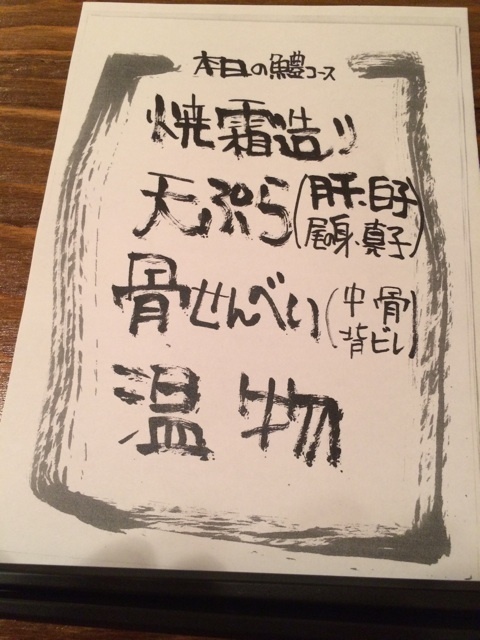 本日の鱧コース
焼霜造り
天ぷら(肝・白子
尾の身・真子)
骨せんべい(中骨
背ビレ)
温物